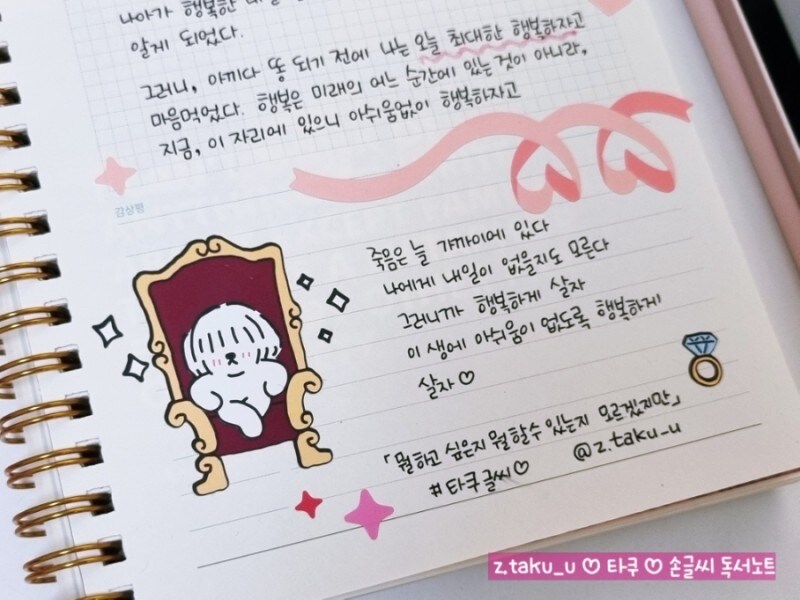 나아가 행복한
알게 되었다.
그러니, 아끼다 똥 되기 전에 나는 오늘 최대한 행복하자고
마음먹었다. 행복은 미래의 어느 순간에 있는 것이 아니라,
지금, 이 자리에 있으니 아쉬움없이 행복하자고
감상평
죽음은 늘 가까이에 있다
나에게 내일이 없을지도 모른다
그러니까 행복하게 살자
이 생에 아쉬움이 없도록 행복하게
살자♡
「뭘하고 싶은지 뭘할수 있는지 모르겠지만」
#타쿠글씨♡ @z.taku_u
z.taku_u ♡ 타쿠 ♡ 손글씨 독서노트